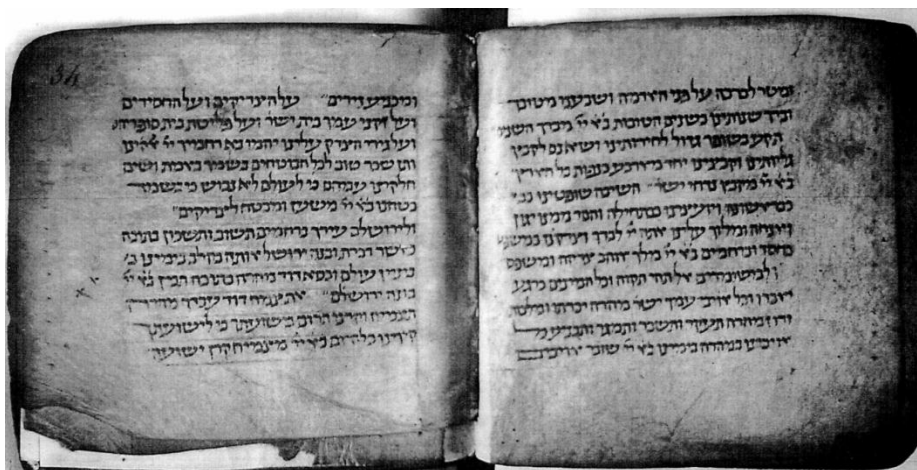 ומטר לברכה על פני האדמה ושבענו מטובך
וברך שנותינו כשנים הטובות בא יי מברך השני
תקע בשופר גדול לחירותינו ושא נס לקבץ
גליותינו וקבצינו יחד מארבע כנפות כל הארץ
בא יי מקבץ נדחי ישר השיבה שופטינו
כבראשונה ויועצינו כבתחילה והסר ממנו יגון
ואנחה ומלוך עלינו אתה יי לבדך וצדקנו במשפ
בחסד וברחמים בא יי מלך אוהב צדקה ומשפט
ולמשומדים אל תהי תקוה וכל המינים כרגע
יאבדו וכל אויבי עמך ישר מהרה יכרתו ומלכות
זדון מהרה תעקר ותשבר ותמגר ותכניע כל
אויבינו במהרה בימינו בא יי שובר אויבים
34
ומכניע זדים על הצדיקים ועל החסידים
ועל זקני עמך בית ישר ועל פליטת בית סופריהם
ועל גירי הצדק עלינו יהמו נא רחמיך יי אלהינו
ותן שכר טוב לכל הבוטחים בשמך באמת ושים
חלקינו עמהם כי לעולם לא נבוש כי בשמך
בטחנו בא יי משען ומבטח לצדיקים
ולירושלם עירך ברחמים תשוב ותשכון בתוכה
כאשר דברת ובנה ירושל אותה בקרוב בימינו
בינין עולם וכסא דוד מהרה בתוכה תכין בא יי
בונה ירושלם את צמח דוד עבדך מהירה
תצמיח וקרנו תרום בישועתך כי לישועתך
קוינו כל היום בא יי מצמיח קרן ישועה